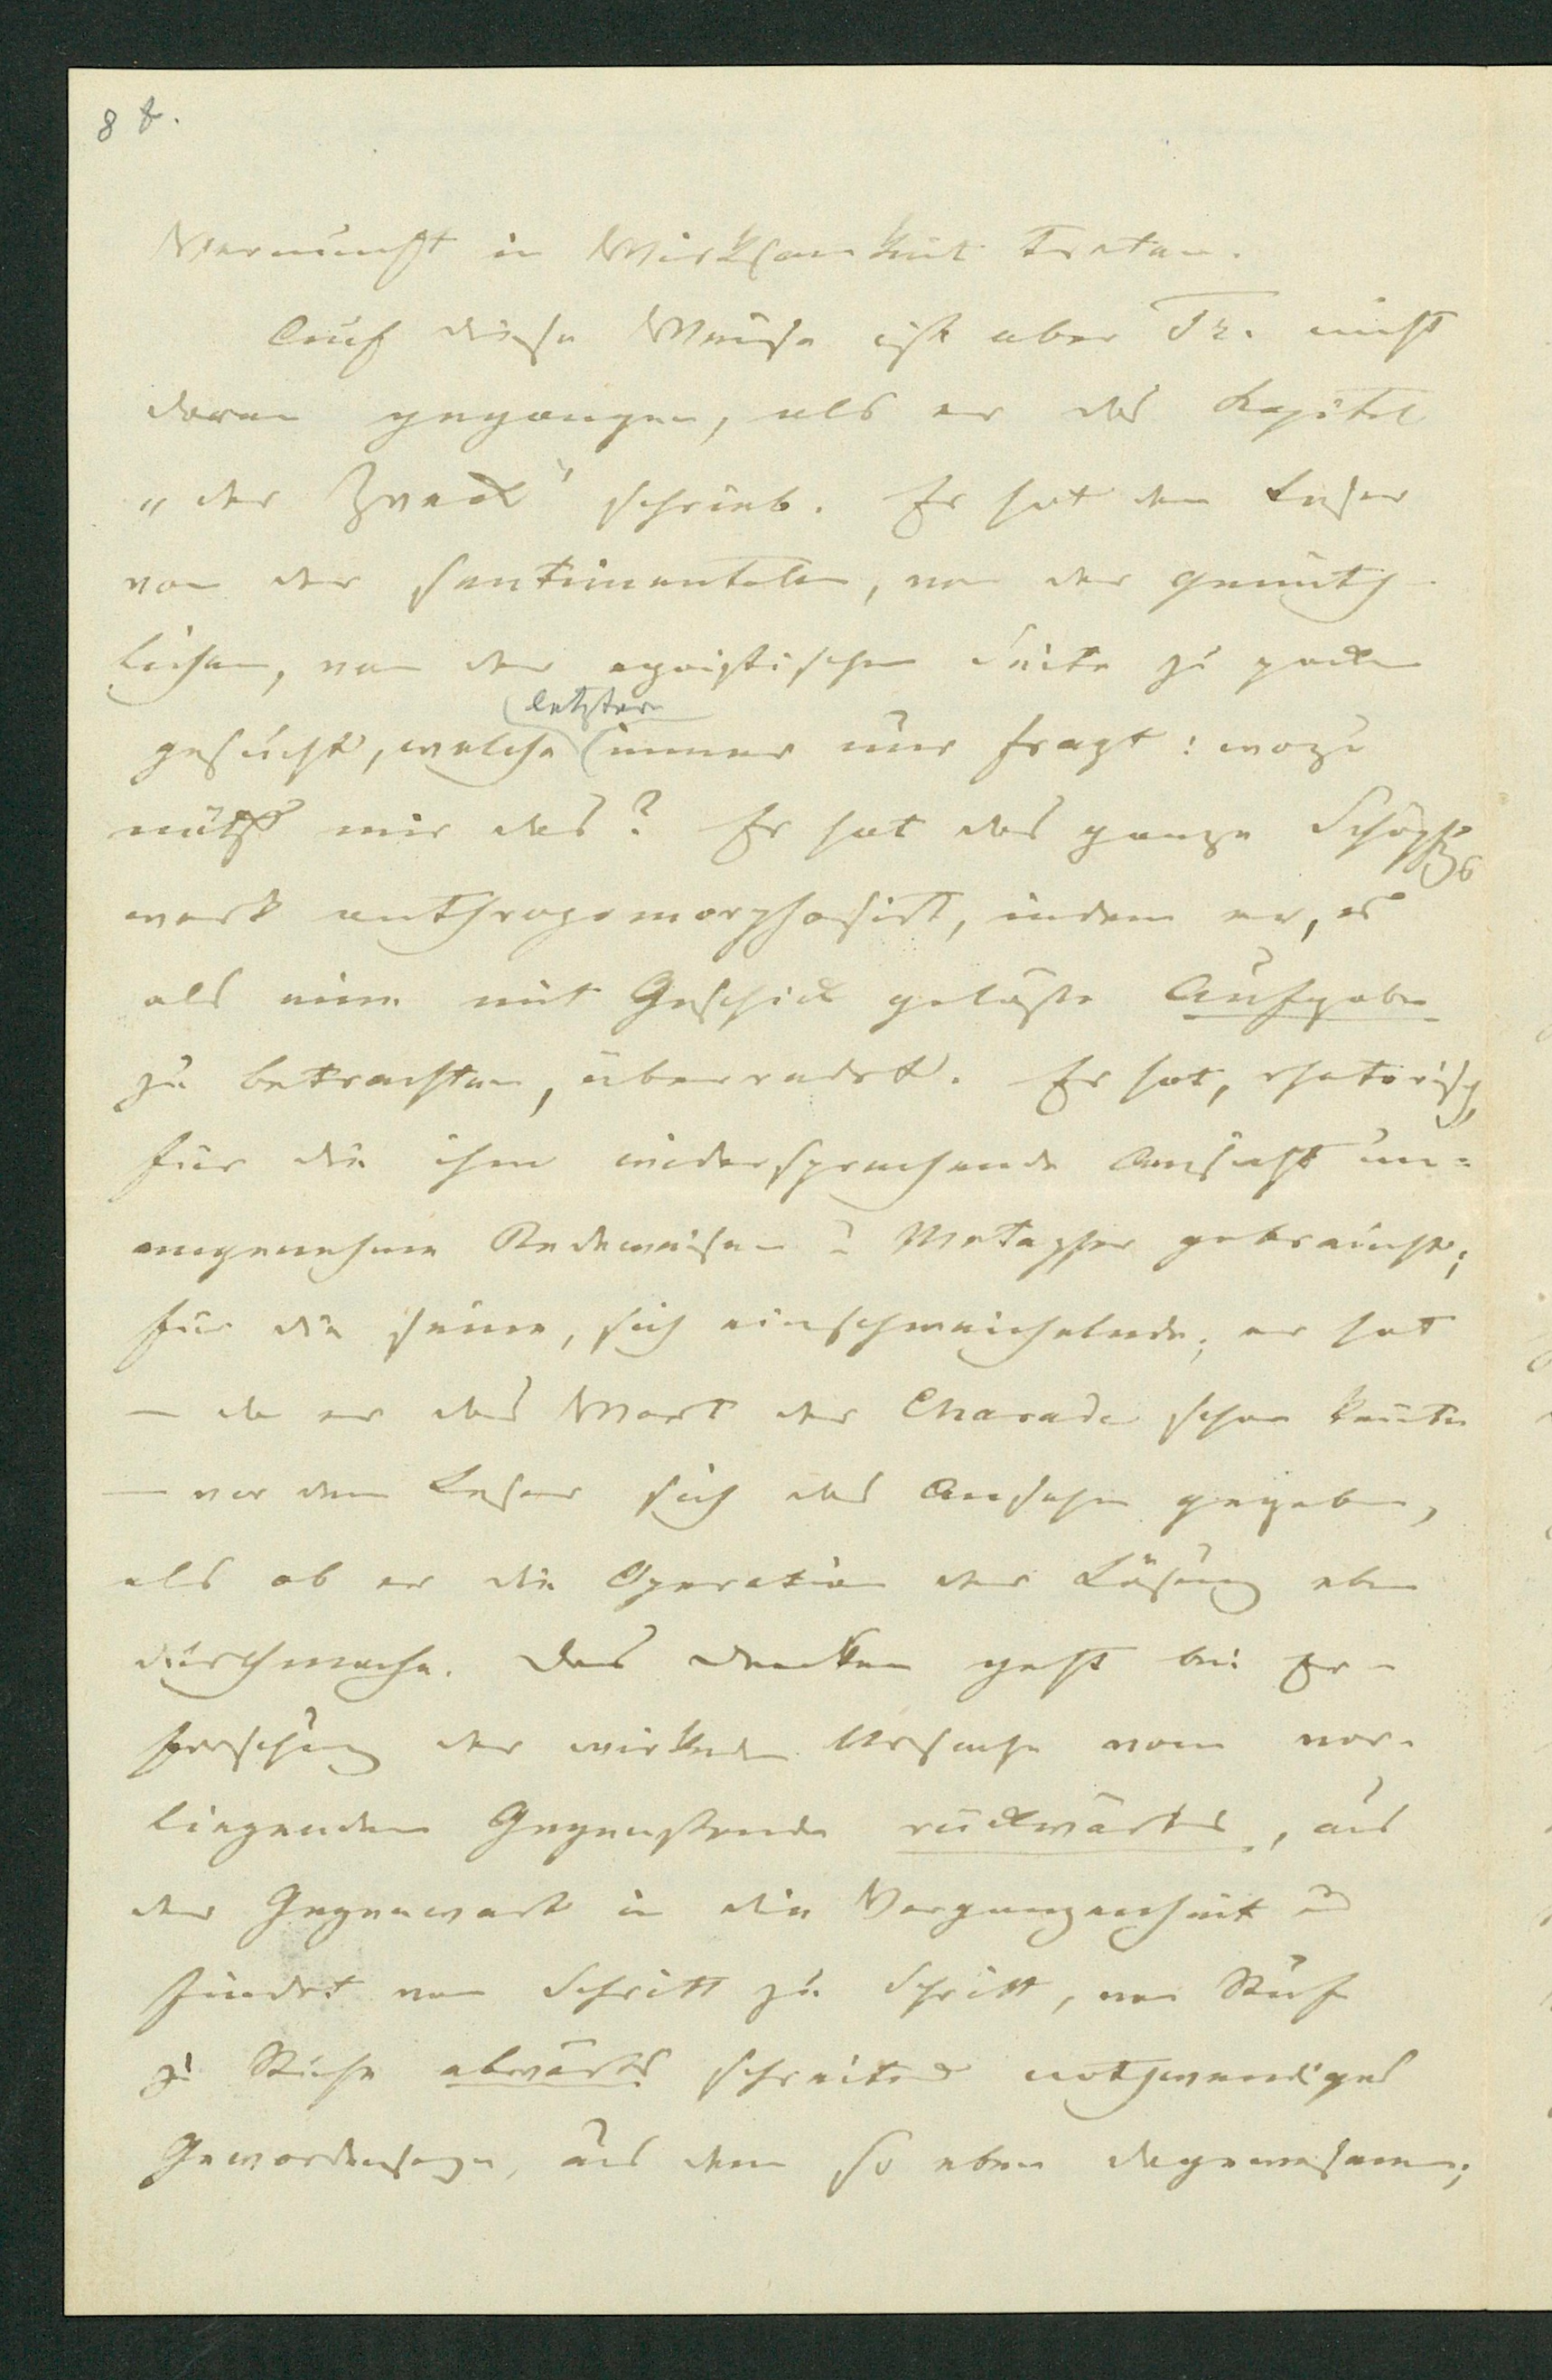 8 f.
Vernunft in Wirksamkeit treten.
Auf diese Weise ist aber Tr. nicht
daran gegangen, als er das Kapitel
„der Zweck" schrieb. Er hat den Leser
von der sentimentalen, von der gemüth-
lichen, von der egoistischen Seite zu packen
letztere
gesucht, welche immer nur fragt: wozu
nützt mir das? Er hat das ganze Schöpfgs
werk anthropomorphosirt, indem er, es
als eine mit Geschick gelöste Aufgabe
zu betrachten, überredet. Er hat, rhetorisch,
für die ihm widersprechende Ansicht un=
angenehme Redeweisen u Metapher gebraucht;
für die seine, sich einschmeichelnde; er hat
— da er das Wort der Charade schon kannte
— vor dem Leser sich das Ansehen gegeben,
als ob er die Operation der Lösung eben
durchmache. Das Denken geht bei Er-
forschung der wirkenden Ursache vom vor-
liegenden Gegenstande rückwärts, aus
der Gegenwart in die Vergangenheit und
findet von Schritt zu Schritt, von Stufe
zu Stufe abwärts schreitend nothwendiges
Gewordenseyn, aus dem so eben dagewesenen;